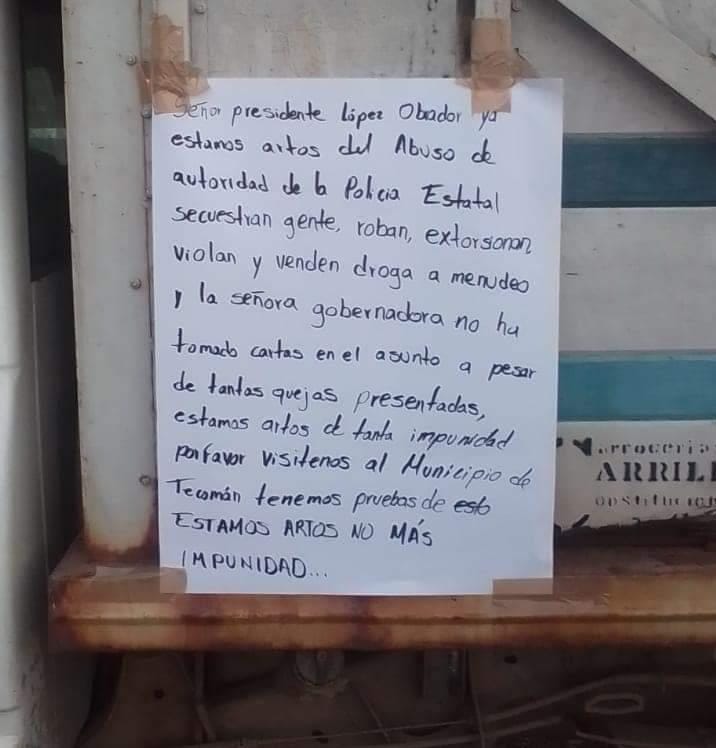 Señor presidente lópez Obrador ya
estamos artos del Abuso de
autoridad de la Policia Estatal
secuestran gente, roban, extorsionan
violan y venden droga a menudeo
y la señora gobernadora no ha
tomado cartas en el asunto a pesar
de tantas quejas presentadas,
estamos artos de tanta impunidad
porfavor visitenos al Municipio de
Tecomán tenemos pruebas de esto
ESTAMOS ARTOS NO MÁS
IMPUNIDAD...
arrocería
ARRIL